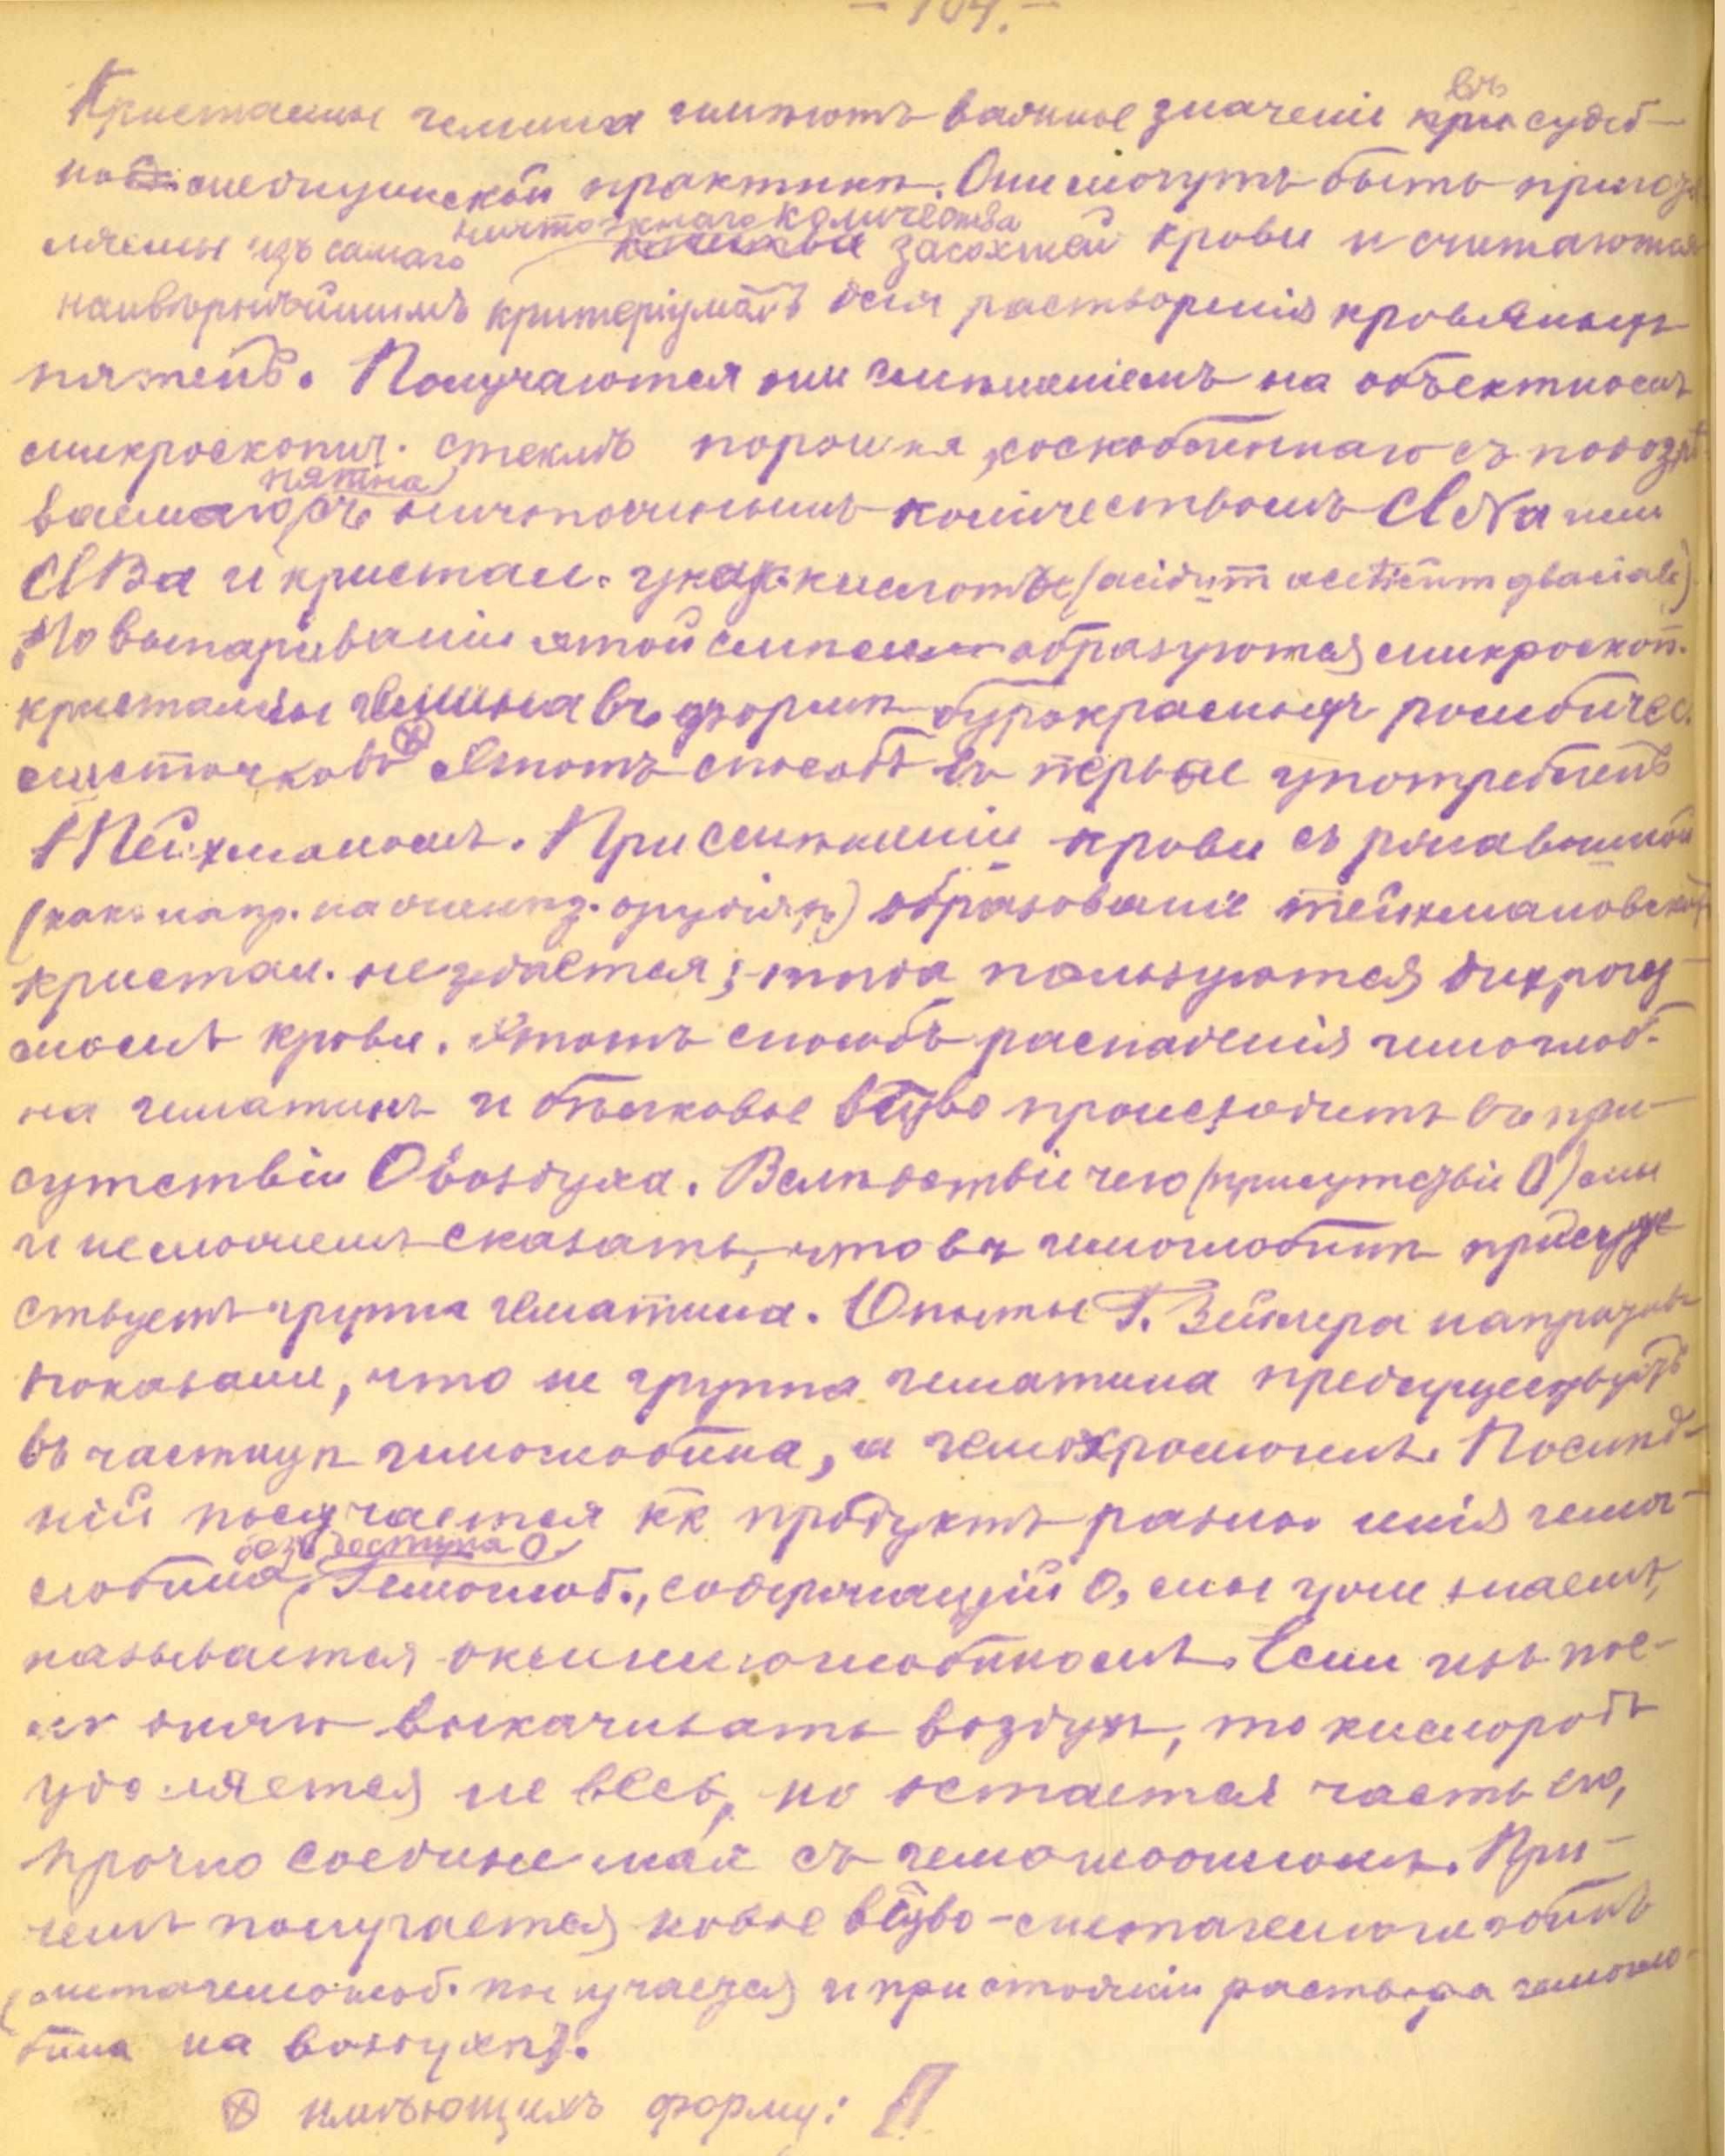 — 104. —
Кристаллы гемина имѣютъ важное значеніе въ судеб-
но медицинской практикѣ. Они могутъ быть пригото-
вляемы изъ самаго ничтожнаго количества засохшей крови и считаются
наивѣрнѣйшимъ критеріумомъ для растворенія кровяныхъ
пятенъ. Получаются они смѣшеніемъ на объектномъ
микроскопич. стеклѣ порошка, соскобленнаго съ подозрѣ-
ваемаго пятна съ ничтожнымъ количествомъ ClNa или
ClBa и кристал. укс. кислоты (acidum aceticum glaciale).
По выпариваніи этой смѣси образуются микроскоп.
кристаллы гемина въ формѣ бурокрасныхъ ромбичес.
листочковъ ⊗ Этотъ способъ въ первые употребленъ
Тейхманомъ. При смѣшеніи крови съ ржавчиной
(какъ напр. на орудіяхъ) образованіе тейхмановскихъ
кристал. не удается; тогда пользуются дихрои-
змомъ крови. Этотъ способъ распаденія гемоглоб.
на гематинъ и бѣлковое в‑ство происходитъ въ при-
сутствіи O воздуха. Вслѣдствіе чего (присутствіе O) мы
и не можемъ сказать, что въ гемоглобинѣ предсуще-
ствуетъ группа гематина. Опыты Г. Зейлера напротивъ
показали, что не группа гематина предсуществуетъ
въ частицѣ гемоглобина, а гемохромогенъ. Послѣд-
ній получается кк продуктъ разложенія гемо-
глобина, безъ доступа O. Гемоглоб., содержащій O, мы уже знаемъ,
называется оксигемоглобиномъ. Если изъ
него выкачивать воздухъ, то кислородъ
удаляется не весь, но остается часть его,
прочно соединенная съ гемоглобиномъ. При-
чемъ получается новое в‑ство - метагемоглобинъ
(метагемоглоб. получается и при стояніи раствора гемогло-
бина на воздухѣ).
⊗ имѣющихъ форму: